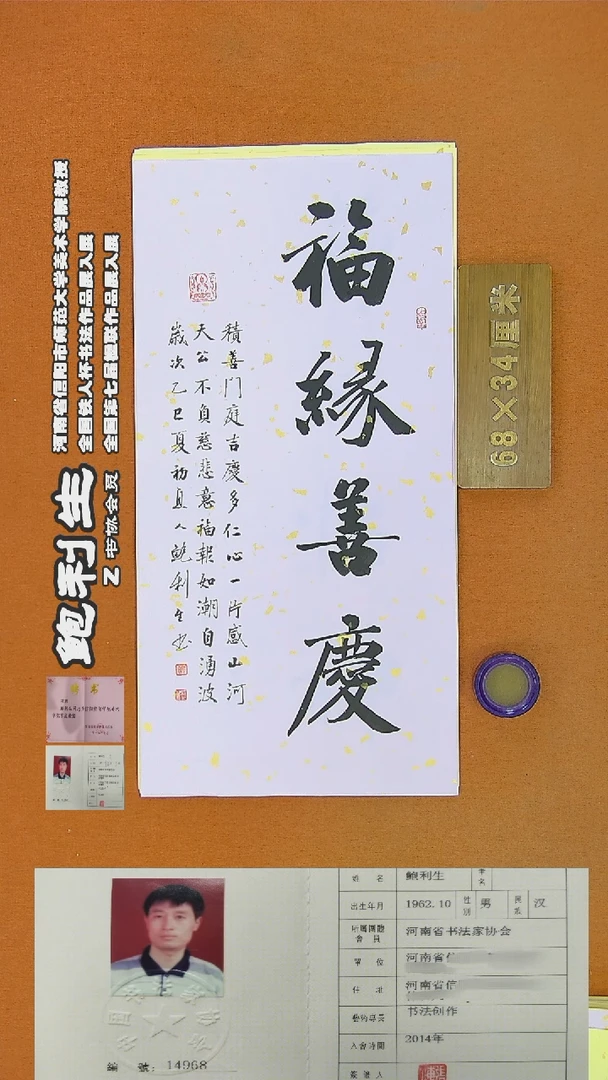 福緣善慶
積善門庭吉慶多仁心一片感山河
天公不負慈悲意福報如潮自湧波
歲次乙巳夏初且人鮑利生書
68×34厘米
河南省信阳市师范大学美术学院教授
全国牧人杯书法作品展入展
全国第七届楹联作品展入展
鲍利生
Z书协会员
姓 名 鲍利生
出生年月 1962.10 性别 男 民族 汉
河南省书法家协会
單 位 河南省信
任 职 河南省信
藝術專長 书法创作
入會時間 2014年
簽發人
編 號：14968